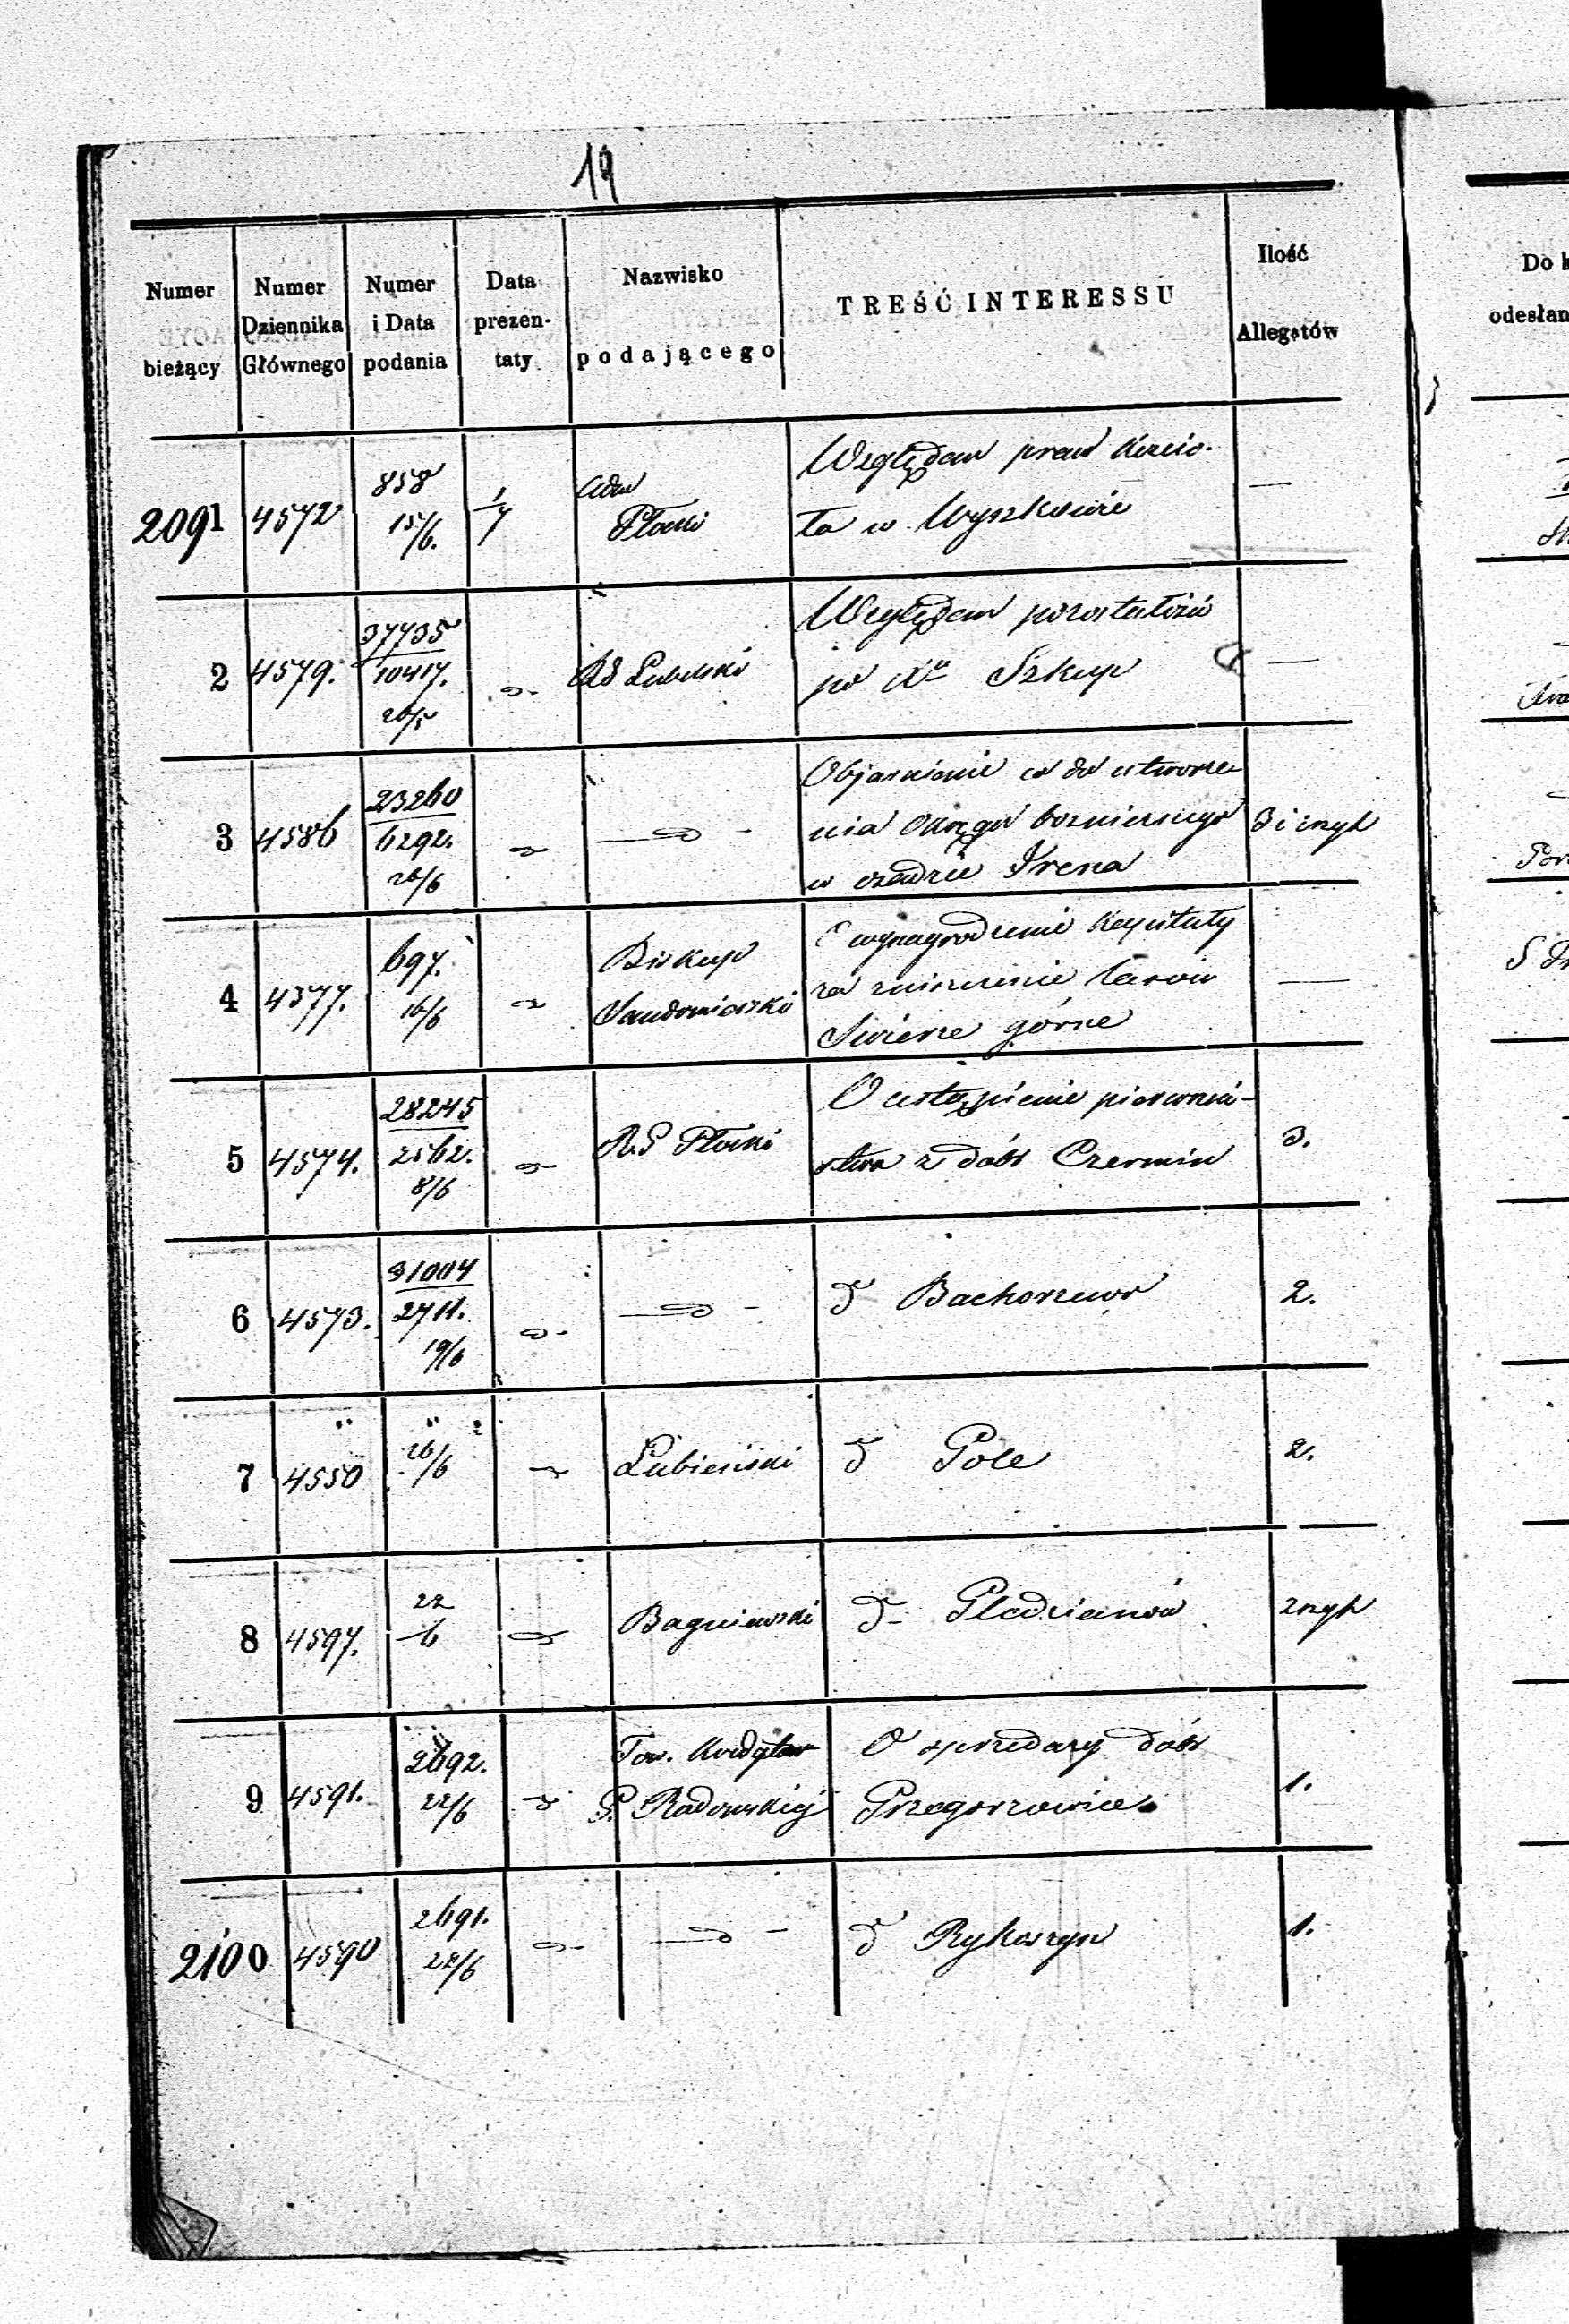 19
Numer bieżący
Numer Dziennika Głównego
Numer i Data podania
Data prezen- taty
Nazwisko podającego
TREŚĆ INTERESSU
Ilość Allegatów
Do k
odesłan
2091 4572 858 15/6. 1/7 Adm Płocki Względem praw Kościo-
ła w Wyszkowie —
2 4579. 37735/10417. 26/5 d- RG Lubelski Względem pozostałości
po Xu Szkup —
3 4586 23260/6292. 26/6 d —d- Objasnienie co do utworze
nia Okręgu bożniczego 3 i zszyt
w osadzie Irena
4 4377. 697. 16/6 d Biskup O wynagrodzenie Kapituły
Sandomierski za zniszczenie lasów —
Świerze górne
5 4574. 28245/2562. 8/6 d- R.G Płocki O ustąpienie pierwszeń-
stwa z dóbr Czermin 3.
6 4573. 31004/2711. 19/6 d- —d- d Bachorzewo 2.
7 4550 " 26/6 d Lubieński d Pole 2.
8 4597. 22/6 d Bagniewski d- Gledzianów zszyt
9 4591. 2692. 22/6 d Tow. Kredytow O sprzedaży dóbr
G. Radomskiej Grzegorzowice 1.
2100 4590 2691. 22/6 d- —d- d Rykoszyn 1.